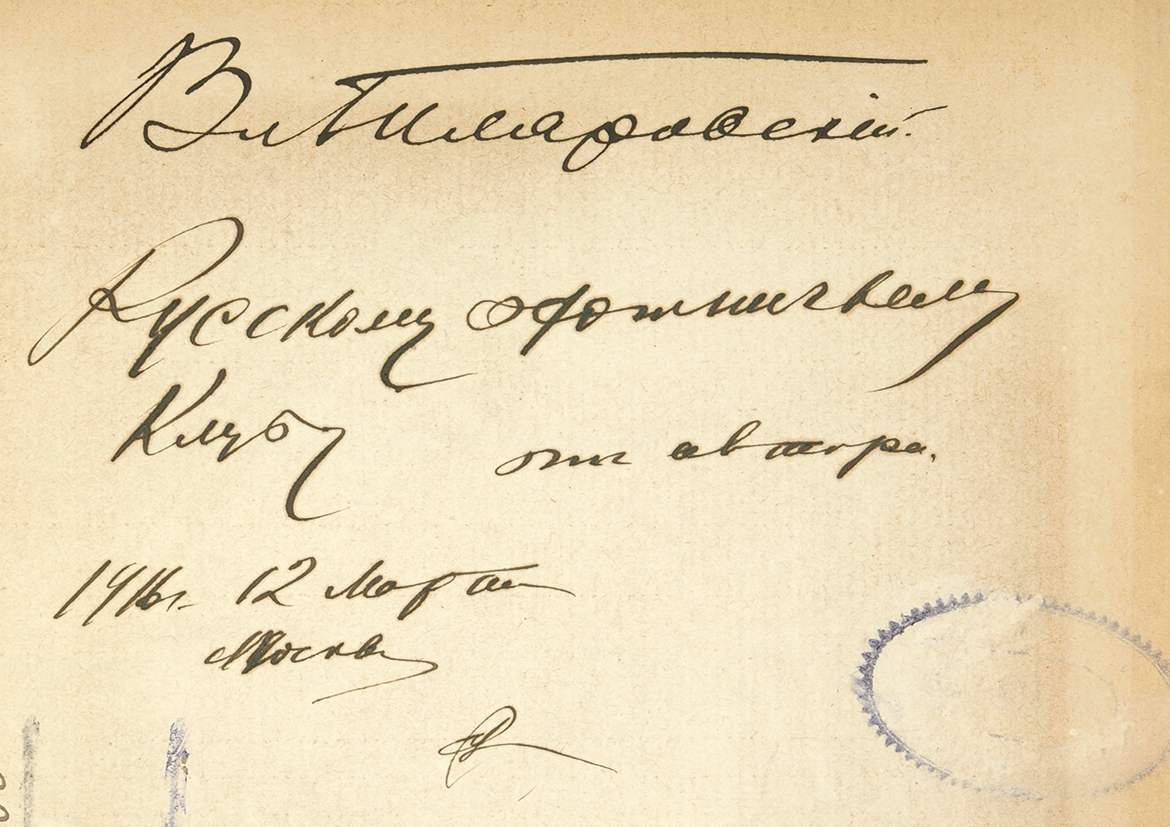 Вл Гиляровскій.
Русскому охотничьему
Клубу отъ автора.
1916г. 12 Марта
Москва